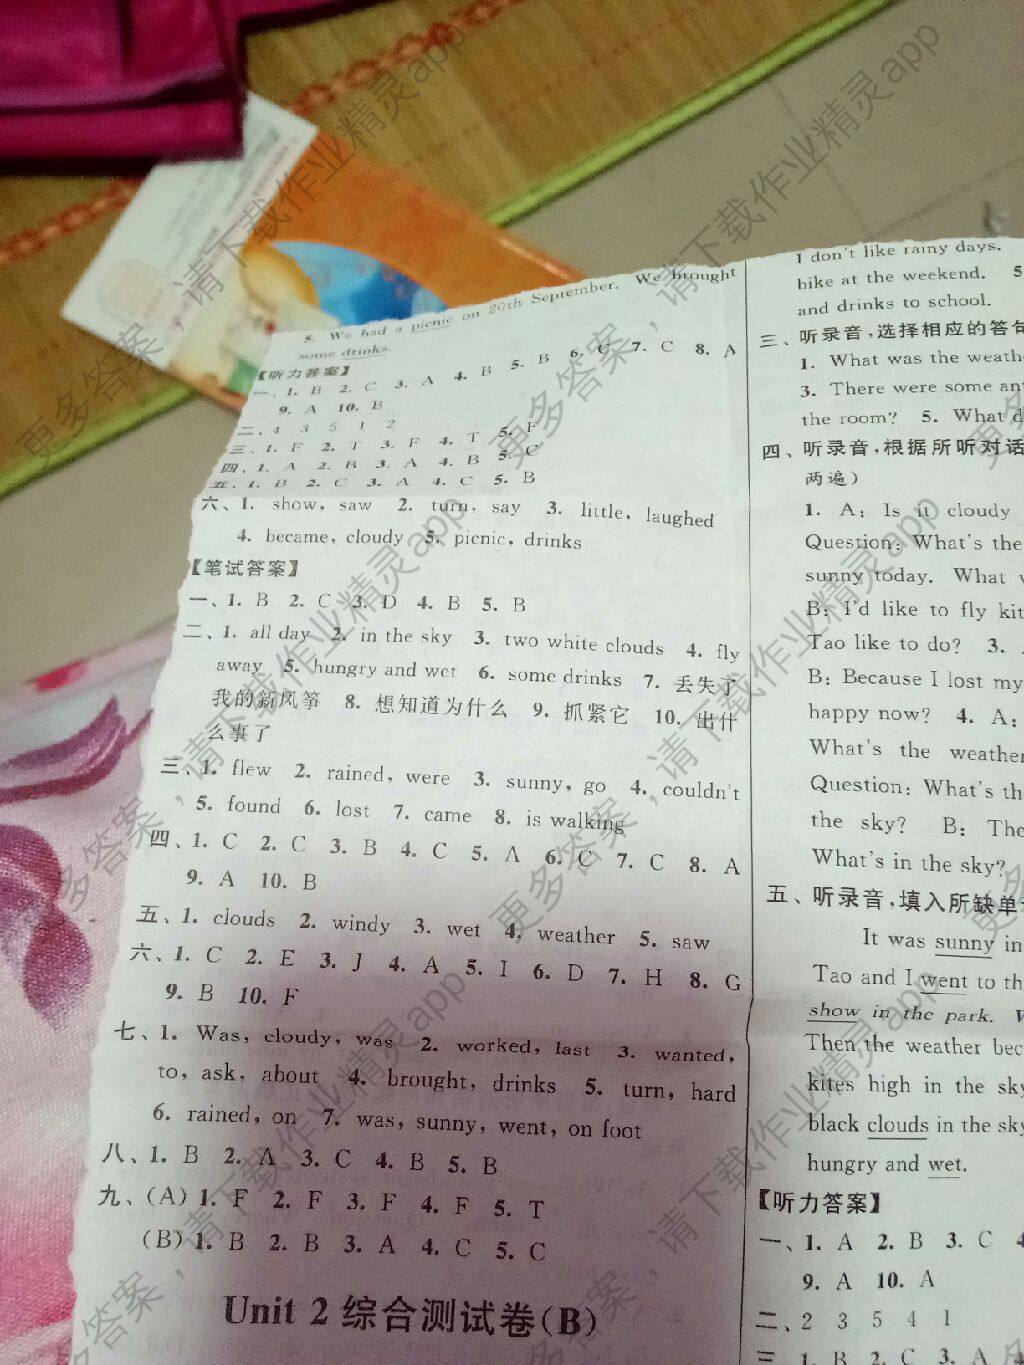 5. We had a picnic on 20th September. We brought
some drinks.
【听力答案】
一、1. B 2. C 3. A 4. B 5. B 6. C 7. C 8. A
9. A 10. B
二、4 3 5 1 2
三、1. F 2. T 3. F 4. T 5. F
四、1. A 2. B 3. A 4. B 5. C
五、1. B 2. C 3. A 4. C 5. B
六、1. show, saw 2. turn, say 3. little, laughed
4. became, cloudy 5. picnic, drinks
【笔试答案】
一、1. B 2. C 3. D 4. B 5. B
二、1. all day 2. in the sky 3. two white clouds 4. fly
away 5. hungry and wet 6. some drinks 7. 丢失了
我的新风筝 8. 想知道为什么 9. 抓紧它 10. 出什
么事了
三、1. flew 2. rained, were 3. sunny, go 4. couldn't
5. found 6. lost 7. came 8. is walking
四、1. C 2. C 3. B 4. C 5. A 6. C 7. C 8. A
9. A 10. B
五、1. clouds 2. windy 3. wet 4. weather 5. saw
六、1. C 2. E 3. J 4. A 5. I 6. D 7. H 8. G
9. B 10. F
七、1. Was, cloudy, was 2. worked, last 3. wanted,
to, ask, about 4. brought, drinks 5. turn, hard
6. rained, on 7. was, sunny, went, on foot
八、1. B 2. A 3. C 4. B 5. B
九、(A) 1. F 2. F 3. F 4. F 5. T
(B) 1. B 2. B 3. A 4. C 5. C
Unit 2 综合测试卷(B)
I don't like rainy days.
bike at the weekend. 5
and drinks to school.
三、听录音,选择相应的答句
1. What was the weath
3. There were some an
the room? 5. What d
四、听录音,根据所听对话
两遍)
1. A: Is it cloudy
Question: What's the
sunny today. What
B: I'd like to fly kit
Tao like to do? 3.
B: Because I lost my
happy now? 4. A:
What's the weather
Question: What's th
the sky? B: The
What's in the sky?
五、听录音,填入所缺单
It was sunny in
Tao and I went to th
show in the park.
Then the weather bec
kites high in the sky
black clouds in the sky
hungry and wet.
【听力答案】
一、1. A 2. B 3. C 4
9. A 10. A
二、2 3 5 4 1
三、1. B 2. C 3. A 4
更多答案,请下载作业精灵app